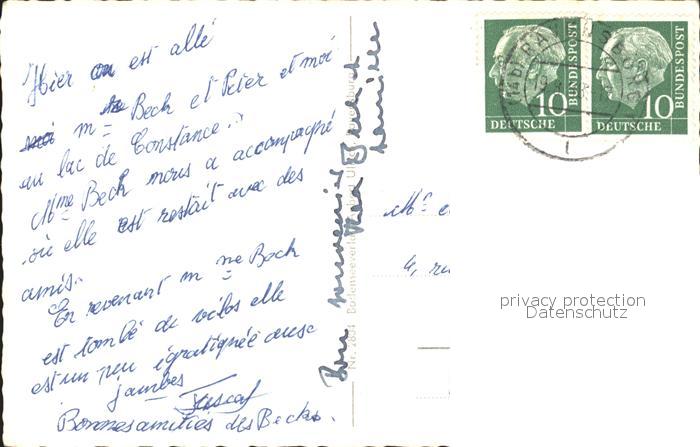 Hier on est allé
m me Beck et Peter et moi
au lac de Constance.
Mme Beck nous a accompagné
où elle est restait avec des
amis.
En revenant m me Beck
est tombé de vélos elle
est un peu égratignée aux
jambes
Pascal
Bonnes amities des Becks.
Bon souvenir
famille
Nr. 2834 Bodenseeverlag
Mr e
4, ru
10
DEUTSCHE
BUNDESPOST
10
DEUTSCHE
BUNDESPOST
privacy protection
Datenschutz